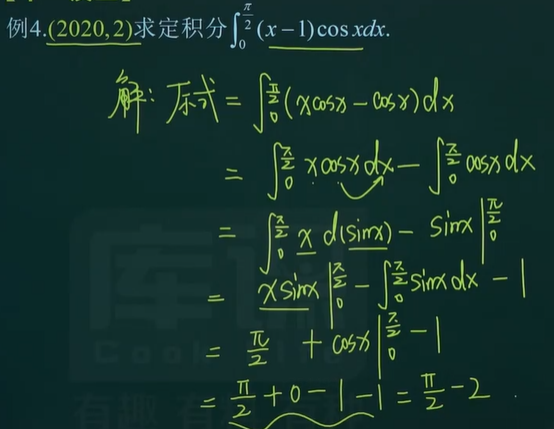 例4.(2020,2)求定积分∫₀^{π/2}(x−1)cosxdx.
解：原式=∫₀^{π/2}(xcosx−cosx)dx
=∫₀^{π/2}xcosxdx−∫₀^{π/2}cosxdx
=∫₀^{π/2}x d(sinx)−sinx|₀^{π/2}
=xsinx|₀^{π/2}−∫₀^{π/2}sinxdx−1
=π/2+cosx|₀^{π/2}−1
=π/2+0−1−1=π/2−2.
库课